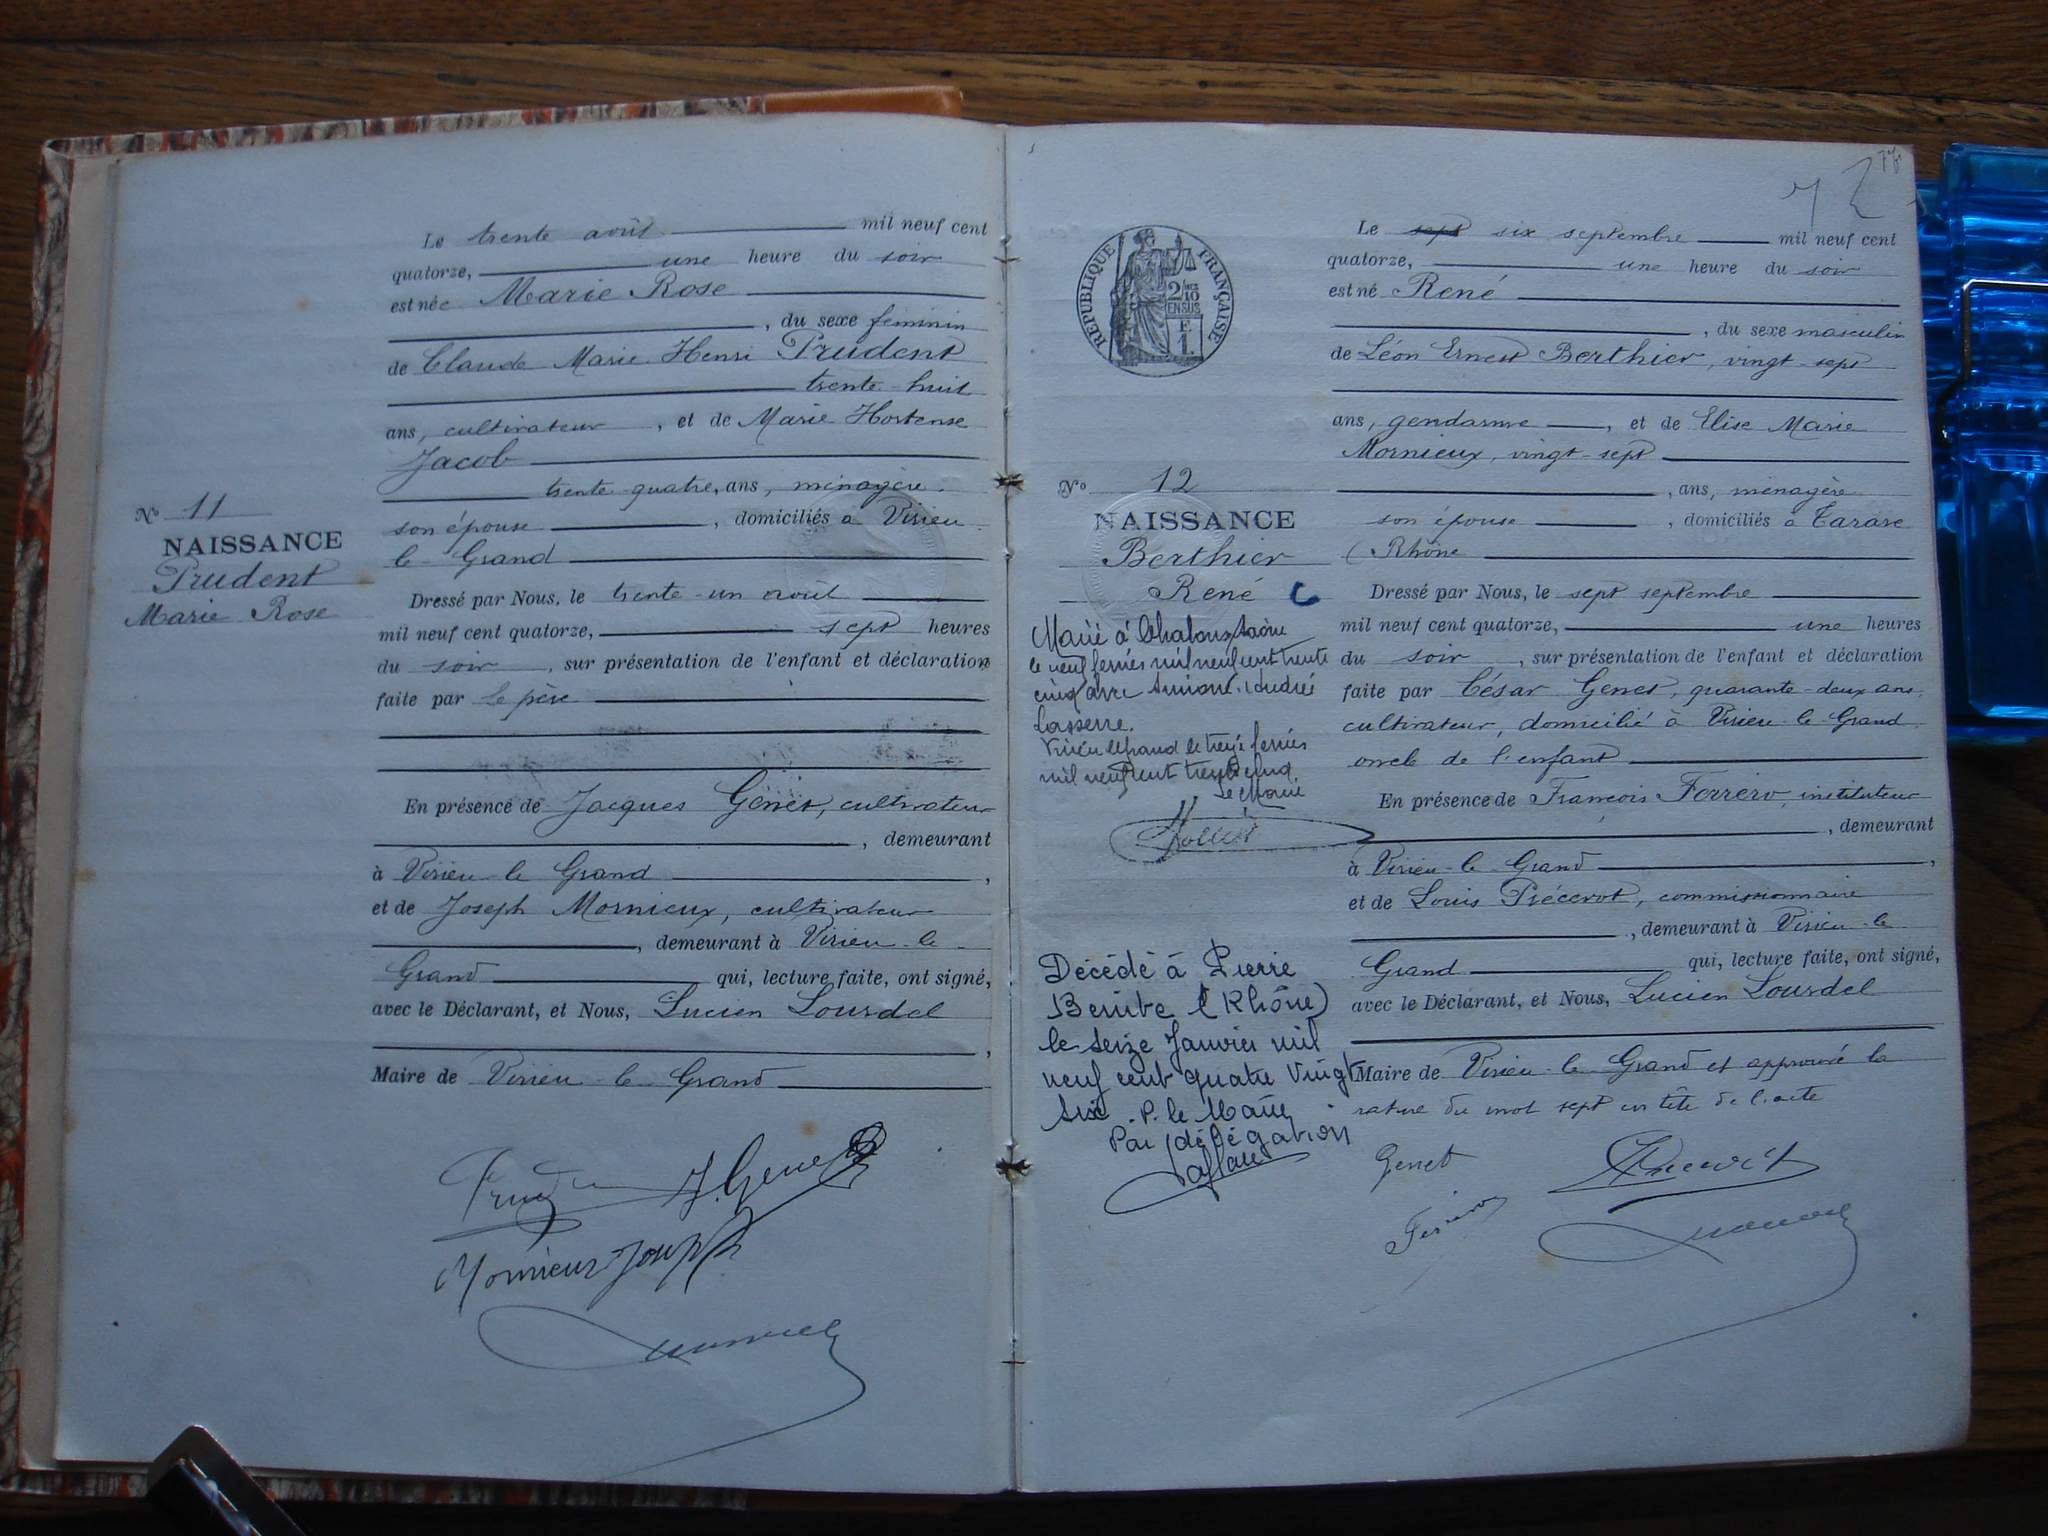 Le trente août mil neuf cent
quatorze, une heure du soir
est née Marie Rose
, du sexe féminin
de Claude Marie Henri Prudent
trente-huit
ans, cultivateur, et de Marie Hortense
Jacob
trente-quatre, ans, ménagère.
son épouse, domiciliés à Virieu
le-Grand
Nº 11
NAISSANCE
Prudent
Marie Rose
Dressé par Nous, le trente-un août
mil neuf cent quatorze, sept heures
du soir, sur présentation de l'enfant et déclaration
faite par le père
En présence de Jacques Genet, cultivateur
, demeurant
à Virieu-le-Grand,
et de Joseph Mornieux, cultivateur
, demeurant à Virieu-le-
Grand qui, lecture faite, ont signé,
avec le Déclarant, et Nous, Lucien Lourdel
,
Maire de Virieu-le-Grand
J. Genet
Mornieux Joseph
72
RÉPUBLIQUE FRANÇAISE
2/10
EN SUS
F
1
Le sept six septembre mil neuf cent
quatorze, une heure du soir
est né René
, du sexe masculin
de Léon Ernest Berthier, vingt-sept
ans, gendarme, et de Elise Marie
Mornieux, vingt-sept
, ans, ménagère
son épouse, domiciliés à Tarare
(Rhône
Nº 12
NAISSANCE
Berthier
René C
Marié à Chalon s/ Saône
le neuf février mil neuf cent trente
cinq avec Andrée
Lasserre.
Virieu le Grand le treize février
mil neuf cent trente cinq.
Le Maire
Décédé à Pierre
Bénite (Rhône)
le seize Janvier mil
neuf cent quatre vingt
six. P. le Maire
Par délégation
Dressé par Nous, le sept septembre
mil neuf cent quatorze, une heures
du soir, sur présentation de l'enfant et déclaration
faite par César Genet, quarante-deux ans,
cultivateur, domicilié à Virieu-le-Grand.
oncle de l'enfant
En présence de François Ferrero, instituteur
, demeurant
à Virieu-le-Grand,
et de Louis Précerot, commissionnaire
, demeurant à Virieu-le-
Grand qui, lecture faite, ont signé,
avec le Déclarant, et Nous, Lucien Lourdel
Maire de Virieu-le-Grand et approuvé la
rature du mot sept en tête de l'acte
Genet